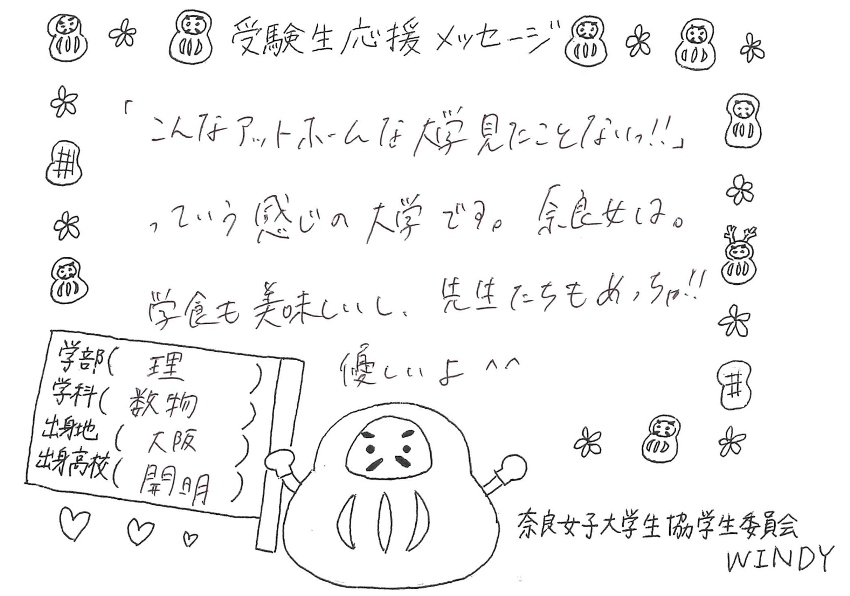 受験生応援メッセージ
「こんなアットホームな大学見たことないっ!!」
っていう感じの大学です。奈良女は。
学食も美味しいし、先生たちもめっちゃ!!
優しいよ^^
学部( 理 )
学科( 数物 )
出身地( 大阪 )
出身高校( 開明 )
奈良女子大学生協学生委員会
WINDY